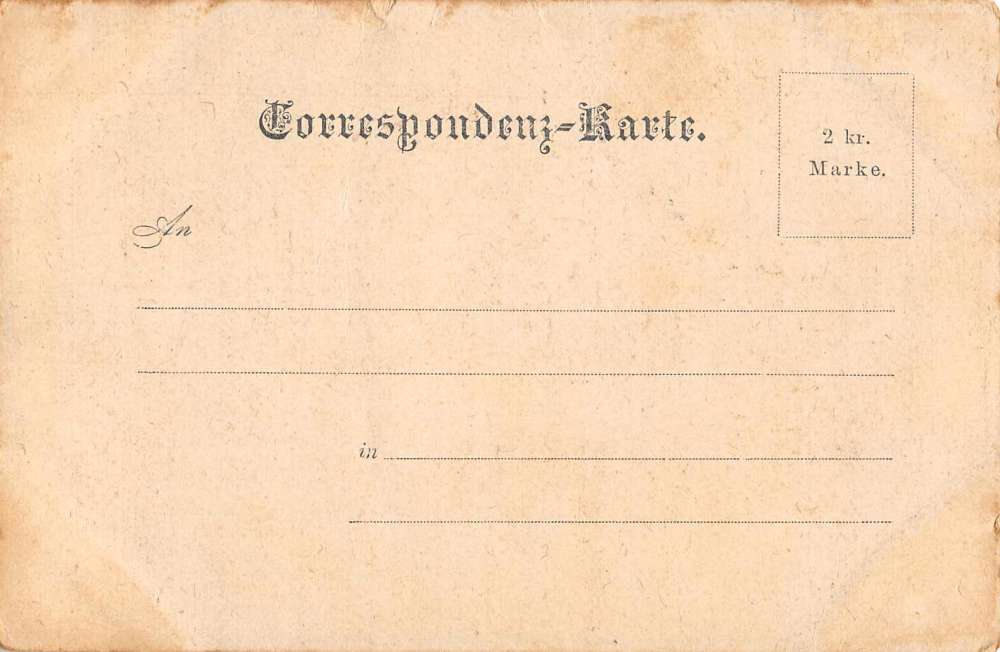 Correspondenz-Karte.
2 kr.
Marke.
An
in